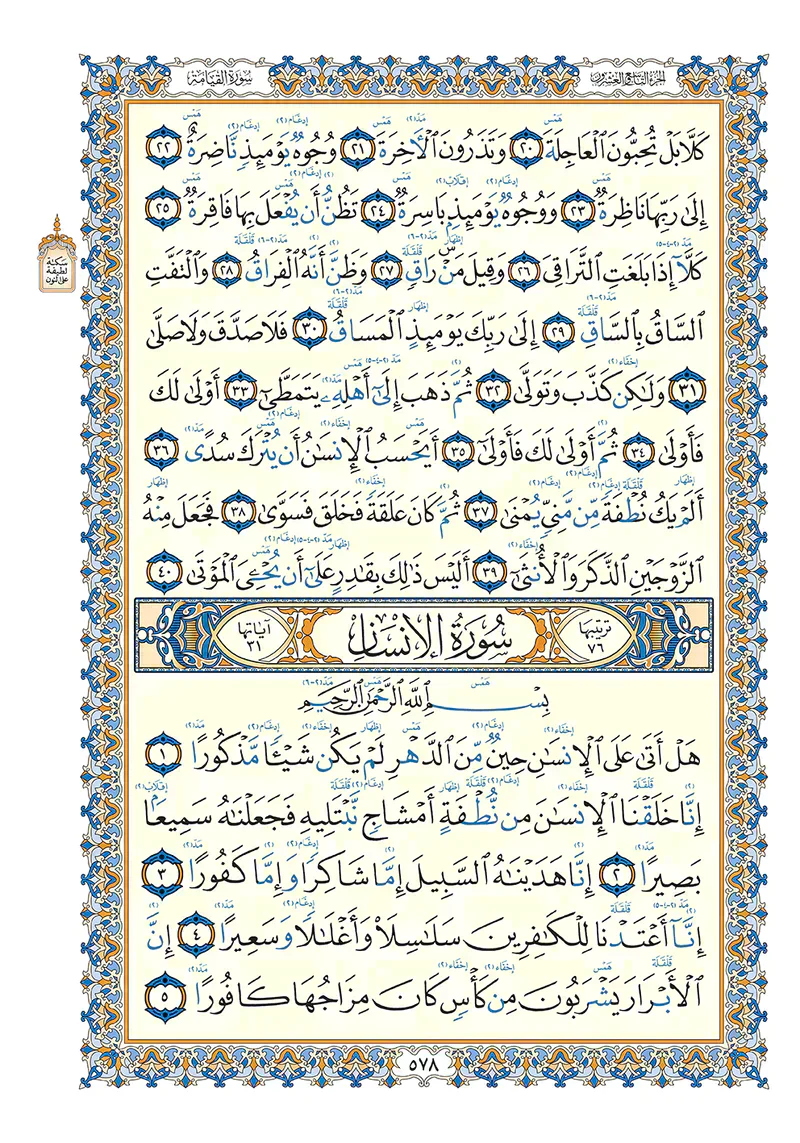 سُورَةُ القِيَامَة
الجزء التاسع والعشرون
كَلَّا بَلْ تُحِبُّونَ ٱلْعَاجِلَةَ ٢٠ وَتَذَرُونَ ٱلْـَٔاخِرَةَ ٢١ وُجُوهٌ يَوْمَئِذٍ نَّاضِرَةٌ ٢٢
إِلَىٰ رَبِّهَا نَاظِرَةٌ ٢٣ وَوُجُوهٌ يَوْمَئِذٍۭ بَاسِرَةٌ ٢٤ تَظُنُّ أَن يُفْعَلَ بِهَا فَاقِرَةٌ ٢٥
كَلَّآ إِذَا بَلَغَتِ ٱلتَّرَاقِىَ ٢٦ وَقِيلَ مَنْ ۜ رَاقٍ ٢٧ وَظَنَّ أَنَّهُ ٱلْفِرَاقُ ٢٨ وَٱلْتَفَّتِ
سكتة
لطيفة
على النون
ٱلسَّاقُ بِٱلسَّاقِ ٢٩ إِلَىٰ رَبِّكَ يَوْمَئِذٍ ٱلْمَسَاقُ ٣٠ فَلَا صَدَّقَ وَلَا صَلَّىٰ
٣١ وَلَٰكِن كَذَّبَ وَتَوَلَّىٰ ٣٢ ثُمَّ ذَهَبَ إِلَىٰٓ أَهْلِهِۦ يَتَمَطَّىٰٓ ٣٣ أَوْلَىٰ لَكَ
فَأَوْلَىٰ ٣٤ ثُمَّ أَوْلَىٰ لَكَ فَأَوْلَىٰٓ ٣٥ أَيَحْسَبُ ٱلْإِنسَٰنُ أَن يُتْرَكَ سُدًى ٣٦
أَلَمْ يَكُ نُطْفَةً مِّن مَّنِىٍّ يُمْنَىٰ ٣٧ ثُمَّ كَانَ عَلَقَةً فَخَلَقَ فَسَوَّىٰ ٣٨ فَجَعَلَ مِنْهُ
ٱلزَّوْجَيْنِ ٱلذَّكَرَ وَٱلْأُنثَىٰٓ ٣٩ أَلَيْسَ ذَٰلِكَ بِقَٰدِرٍ عَلَىٰٓ أَن يُحْـِۧىَ ٱلْمَوْتَىٰ ٤٠
ترتيبها ٧٦
سُورَةُ الإِنسَانِ
آياتها ٣١
بِسْمِ ٱللَّهِ ٱلرَّحْمَٰنِ ٱلرَّحِيمِ
هَلْ أَتَىٰ عَلَى ٱلْإِنسَٰنِ حِينٌ مِّنَ ٱلدَّهْرِ لَمْ يَكُن شَيْـًٔا مَّذْكُورًا ١
إِنَّا خَلَقْنَا ٱلْإِنسَٰنَ مِن نُّطْفَةٍ أَمْشَاجٍ نَّبْتَلِيهِ فَجَعَلْنَٰهُ سَمِيعًۢا
بَصِيرًا ٢ إِنَّا هَدَيْنَٰهُ ٱلسَّبِيلَ إِمَّا شَاكِرًا وَإِمَّا كَفُورًا ٣
إِنَّآ أَعْتَدْنَا لِلْكَٰفِرِينَ سَلَٰسِلَا۟ وَأَغْلَٰلًا وَسَعِيرًا ٤ إِنَّ
ٱلْأَبْرَارَ يَشْرَبُونَ مِن كَأْسٍ كَانَ مِزَاجُهَا كَافُورًا ٥
٥٧٨